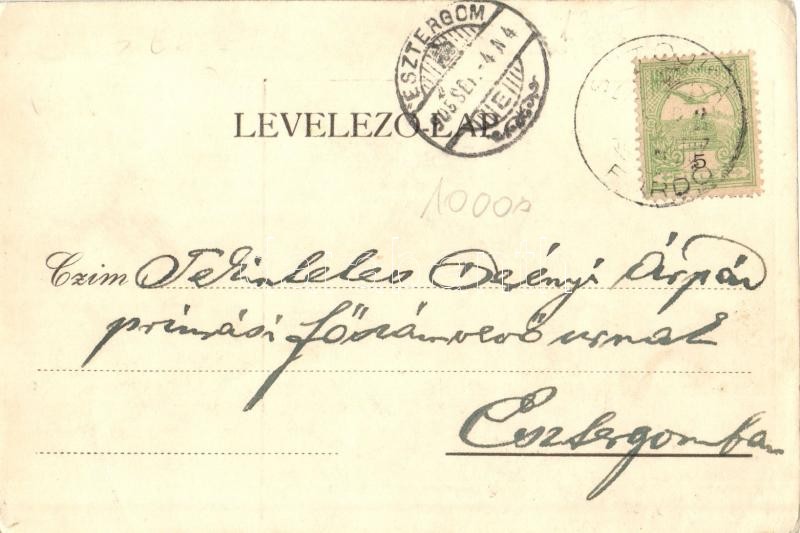 ESZTERGOM
LEVELEZŐ-LAP
5
1000
Czim Tekintetes Dezsényi Árpád
primási főszámvevő urnak
Esztergomban